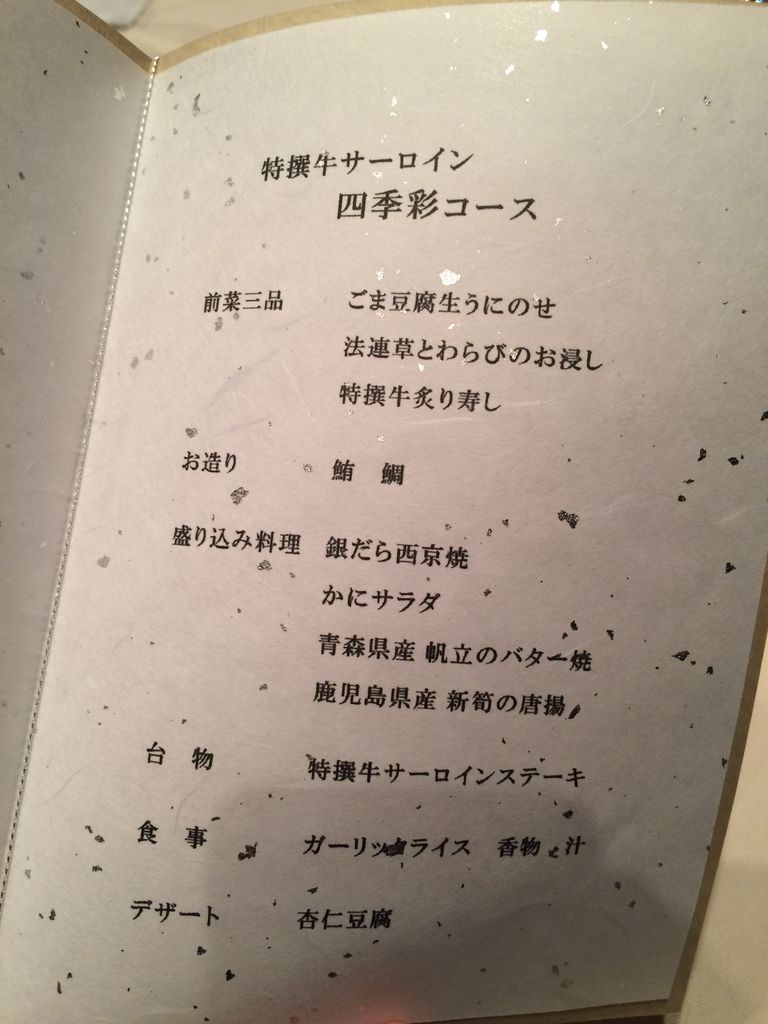 特撰牛サーロイン
四季彩コース
前菜三品 ごま豆腐生うにのせ
法連草とわらびのお浸し
特撰牛炙り寿し
お造り 鮪 鯛
盛り込み料理 銀だら西京焼
かにサラダ
青森県産 帆立のバター焼
鹿児島県産 新筍の唐揚
台物 特撰牛サーロインステーキ
食事 ガーリックライス 香物 汁
デザート 杏仁豆腐